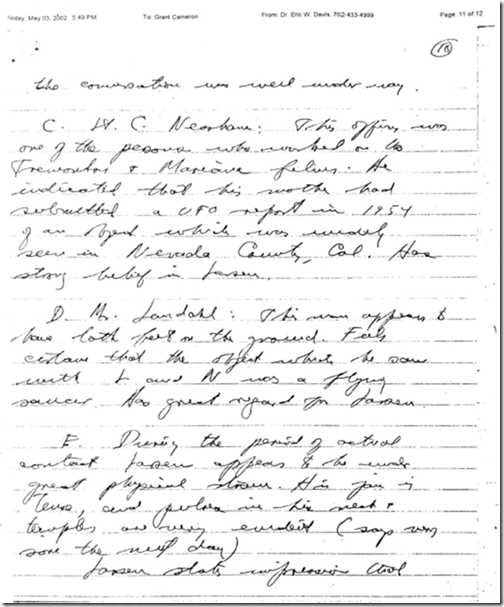 Friday, May 03, 2002 5:49 PM To: Grant Cameron From: Dr. Eric W. Davis, 702-433-4999 Page: 11 of 12
the conversation was well under way.
C. Lt. C. Neasham: This officer was
one of the persons who worked on the
Tremonton & Mariana films. He
indicated that his mother had
submitted a UFO report in 1954
of an object which was widely
seen in Nevada County, Cal. Has
strong belief in Larsen.
D. Mr. Landahl: This man appears to
have both feet on the ground. Feels
certain that the object which he saw
with L and N was a flying
saucer. Has great regard for Larsen
E. During the period of actual
contact Larsen appears to be under
great physical strain. His jaw is
tense, and pulses in his neck &
temples are very evident (says very
sore the next day)
Larsen states impression